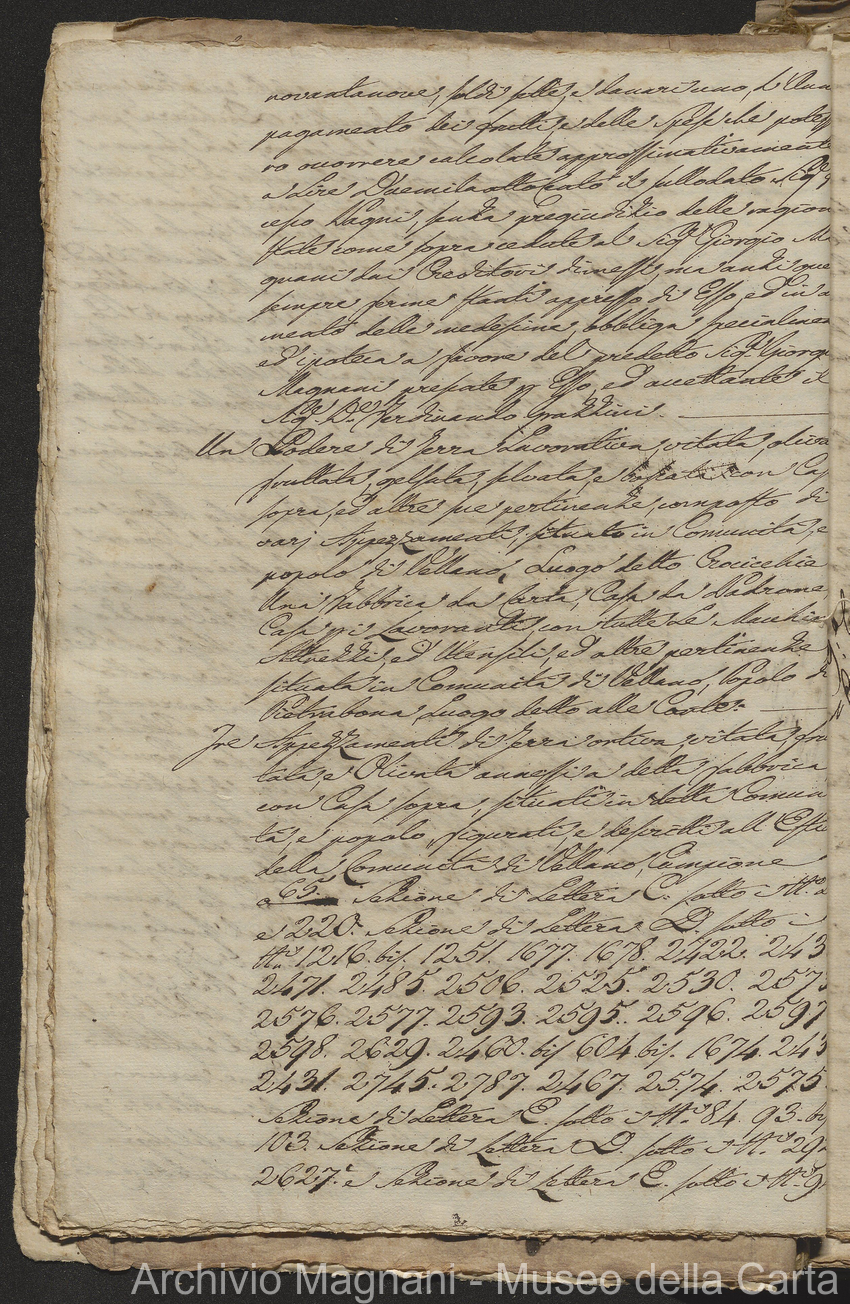 novantanove, soldi sette, e denari uno, L'Ann
pagamento dei frutti, e delle spese che potess
ro occorrere calcolate approssimativamente
a Lire Duemilaottocento il sullodato Sig.
Magni, senza pregiudizio delle ragion
state come sopra cedute al Sig.r Giorgio Ma
gnani dai Creditori dimessi, ma anzi que
sempre ferme stanti appresso di Esso, ed in a
mento delle medesime, obbliga specialmen
ed ipoteca a favore del predetto Sig.r Giorgi
Magnani presente p Esso, ed accettante il
Sig.r D.r Ferdinando
Un Podere di Terra Lavorativa, vitata, oliva
fruttata, gelsata, selvata, e con Cas
sopra, ed altre sue pertinenze, composto di
varj Appezzamenti, situato in Comunità, e
popolo di Vellano, Luogo detto Crocicchie
Una Fabbrica da Carta, Casa da Padrone
Casa pei Lavoranti, con tutte Le Macchin
Attrezzi, ed Utensili, ed altre pertinenze
situata in Comunità di Vellano, Popolo di
Pietrabona, Luogo detto alle Carte.
Tre Appezzamenti di Terra ortiva, vitata, fru
tata, e Olivata annessi a detta fabbrica
con Casa sopra, situati in detta Comuni
tà, e popolo, figurati, e descritti all Esti
della Comunità di Vellano, Campione
a 65. Sezione di Lettera C. sotto i N.i
e 220. Sezione di Lettera D. sotto i
N.i 1216. bis. 1251. 1677. 1678. 2422. 243
2471. 2485. 2506. 2525. 2530. 2573
2576. 2577. 2593. 2595. 2596. 2597
2598. 2629. 2460. bis 604. bis. 1674. 243
2431. 2745. 2787. 2467. 2574. 2575
Sezione di Lettera E. sotto i N.i 84. 93. bi
103. Sezione di Lettera D. sotto i N.i 29
2627. e Sezione di Lettera E. sotto i N.i 9
Archivio Magnani - Museo della Carta